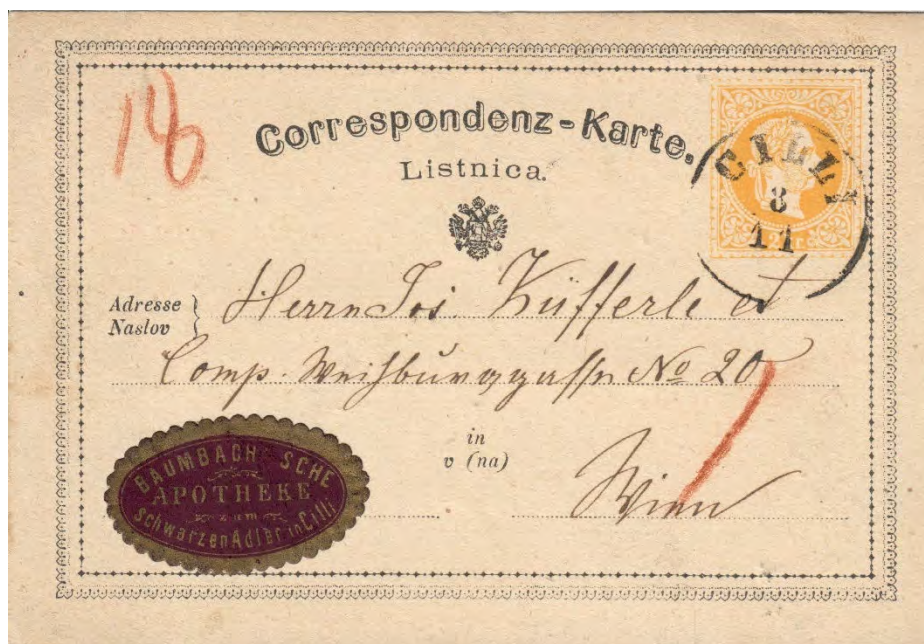 146
Correspondenz-Karte.
Listnica.
CILLI
8
11
2 kr.
Adresse
Naslov
Herrn Jos. Küfferle et
Comp. Weihburggasse No 20
in
v (na)
Wien
BAUMBACH'SCHE
APOTHEKE
zum
schwarzen Adler in Cilli